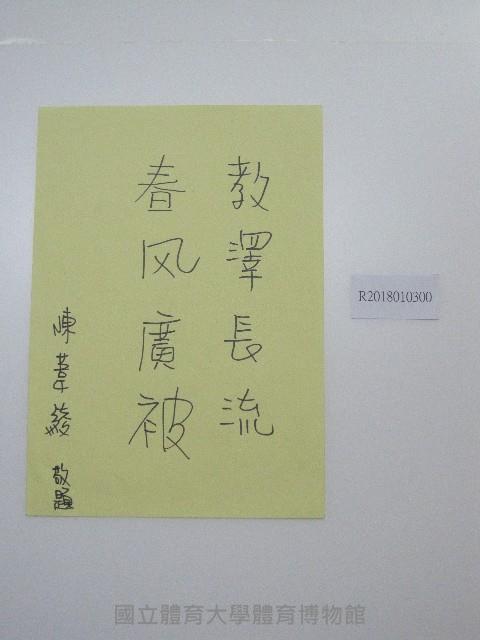 教澤長流
春风廣被
陳葦綾 敬題
R2018010300
國立體育大學體育博物館